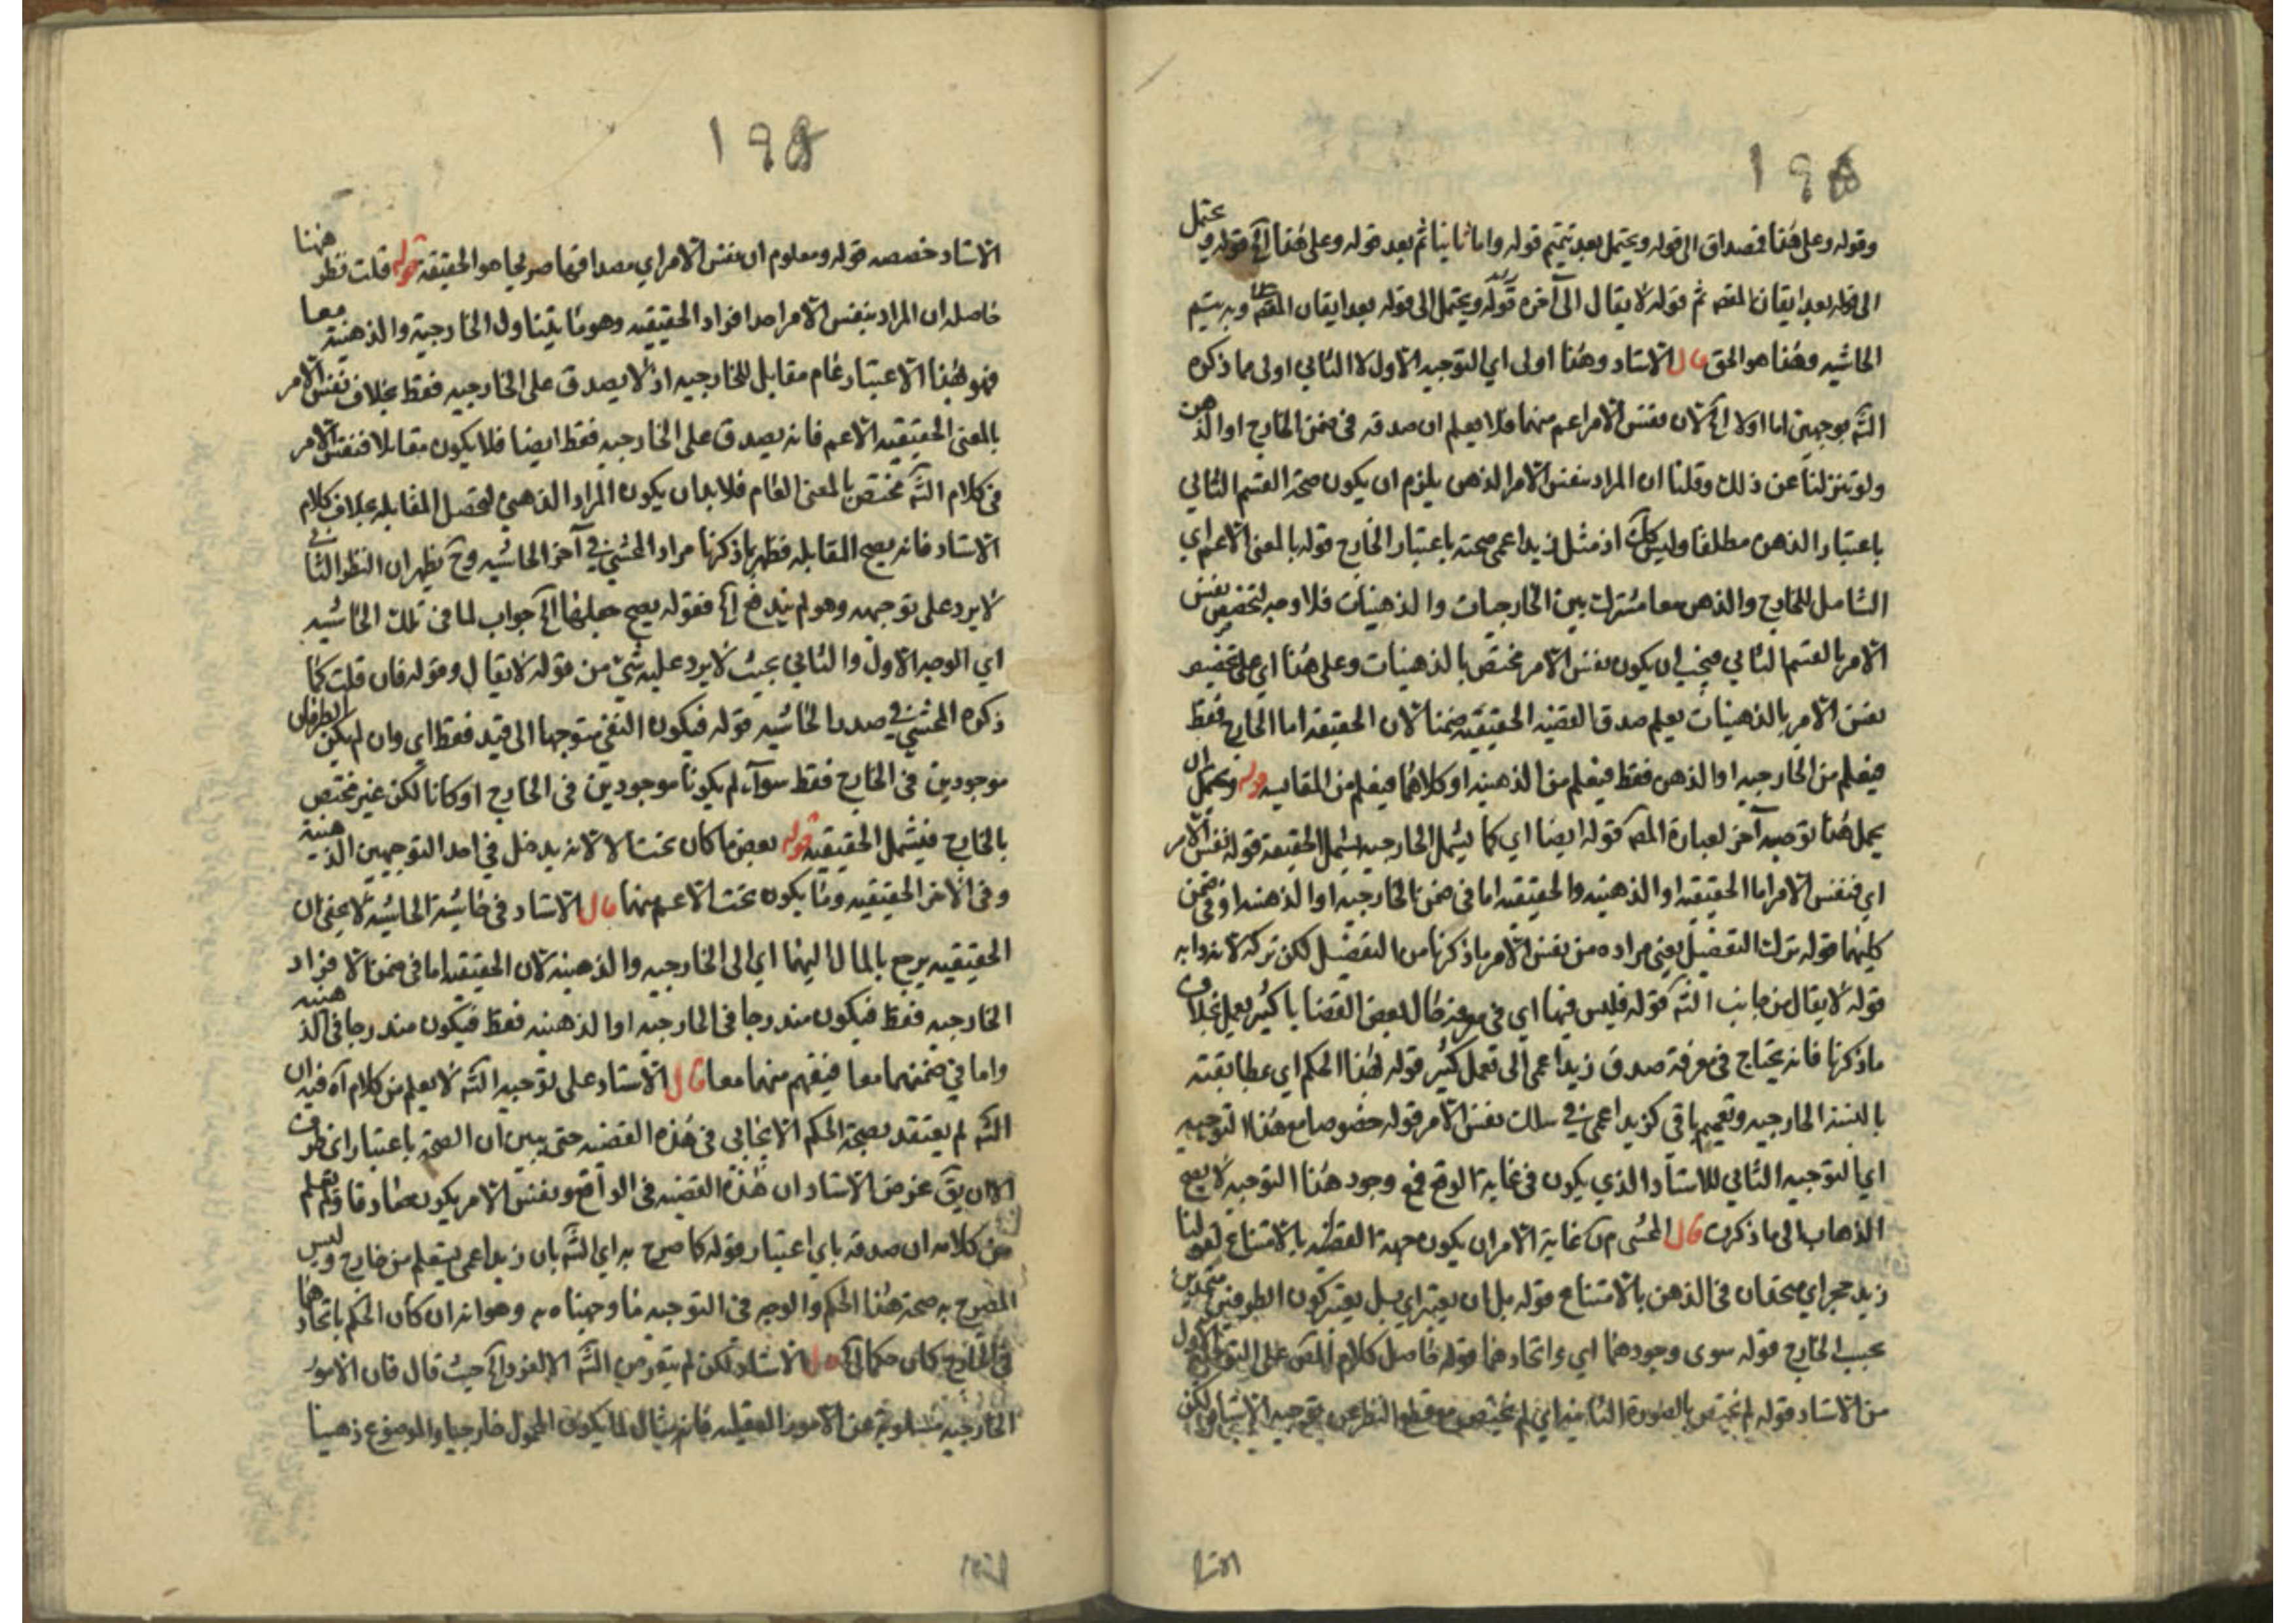 ١٩٥
وقوله وعلى هذا فصداق الى قوله ويحتمل بعد تتميم قوله واما ثانيا ثم بعد قوله وعلى هذا آه قوله و يحتمل
الى قوله بعد ايقان المقصه ثم قوله لا يقال الى آخره قوله ويحتمل الى قوله بعد ايقان المقصه وبه يتيم
الحاشيه وهذا هو الحق قال الاستاد وهذا اولى اي التوجيه الاول لا الثاني اولى مما ذكره
الشه بوجهين اما اولا آه لان نفس الامر اعم منهما فلا يعلم ان صدقه في ضمن الخارج او الذهن
ولو تنزلنا عن ذلك وقلنا ان المراد بنفس الامر الذهن يلزم ان يكون صحة القسم الثاني
باعتبار الذهن مطلقا وليس كك اذ مثل زيد اعمى صحته باعتبار الخارج قوله بالمعنى الاعم اي
الشامل للخارج والذهن معا مشترك بين الخارجيات والذهنيات فلا وجه لتخصيص نفس
الامر بالقسم الثاني فيجب ان يكون نفس الامر مختص بالذهنيات وعلى هذا اي على تخصيص
نفس الامر بالذهنيات يعلم صدق القضيه الحقيقيه ضمنا لان الحقيقه اما الخارج فقط
فيعلم من الخارجيه او الذهن فقط فيعلم من الذهنيه او كلاهما فيعلم من المقايسه قوله ويحتمل ان
يحمل هذا توجيه آخر لعبارة المص قوله ايضا اي كما يشمل الخارجيه يشمل الحقيقه قوله نفس الامر
اي فنفس الامر اما الحقيقيه او الذهنيه والحقيقيه اما في ضمن الخارجيه او الذهنيه او في ضمن
كليهما قوله ترك التفصيل يعني مراده من نفس الامر ما ذكرنا من التفصيل لكن تركه لانه دابه
قوله لا يقال من جانب الشه قوله فليس فيها اي في معرفة حال بعض القضايا كثير تعمل بخلاف
ما ذكرنا فانه يحتاج في معرفة صدق زيد اعمى الى تعمل كثير قوله لهذا الحكم اي بمطابقته
بالنسبة الخارجيه وتعميم باقي كزيد اعمى في سلك نفس الامر قوله خصوصا مع هذا التوجيه
اي التوجيه الثاني للاستاد الذي يكون في غاية الوقع فمع وجود هذا التوجيه لا يصح
الذهاب الى ما ذكرت قال المحشى م ن غاية الامر ان يكون جهة القضيه بالامتناع لقولنا
زيد حجر اي متحدان في الذهن بالامتناع قوله بل ان يعتبر اي بل يعتبر كون الطرفين متحدين
بحسب الخارج قوله سوى وجودهما اي واتحادهما قوله حاصل كلام المص على التوجيه الاول
من الاستاد قوله لم يختص بالصورة الثانيه اي لم يختص مع قطع النظر عن توجيه الاستاد لكن
الاستاد
١٩٥
الاستاد خصصه قوله ومعلوم ان نفس الامر اي مصداقها صريحا هو الحقيقه قوله قلت فظر ههنا
حاصله ان المراد بنفس الامر احد افراد الحقيقيه وهو ما يتناول الخارجية والذهنية معا
فهو بهذا الاعتبار عام مقابل للخارجيه اذ لا يصدق على الخارجيه فقط بخلاف نفس الامر
بالمعنى الحقيقيه الاعم فانه يصدق على الخارجيه فقط ايضا فلا يكون مقابلا فنفس الامر
في كلام الشه مختص بالمعنى العام فلا بد ان يكون المراد الذهني لتحصل المقابله بخلاف كلام
الاستاد فانه يصح المقابله فظهر بما ذكرنا مراد المحشي في آخر الحاشيه وح يظهر ان النظر الثاني
لا يرد على توجيهه وهو لم يندفع آه فقوله يصح جعلهما آه جواب لما في تلك الحاشيه
اي الوجه الاول والثاني بحيث لا يرد عليه شيء من قوله لا يقال وقوله فان قلت كما
ذكره المحشي في صدر الحاشيه قوله فيكون النفي متوجها الى قيد فقط اي وان لم يكن الطرفان
موجودين في الخارج فقط سواء لم يكونا موجودين في الخارج او كانا لكن غير مختص
بالخارج فيشمل الحقيقيه قوله بعض ما كان تحت الا لانه يدخل في احد التوجيهين الذهنية
وفي الآخر الحقيقيه وما يكون تحت الاعم منهما قال الاستاد في حاشية الحاشيه لا يخفى ان
الحقيقيه يرجع بالمال اليهما اي الى الخارجيه والذهنيه لان الحقيقيه اما في ضمن الافراد
الخارجيه فقط فيكون مندرجا في الخارجيه او الذهنيه فقط فيكون مندرجا في الذهنيه
واما في ضمنهما معا فيفهم منهما معا قال الاستاد على توجيه الشه لا يعلم من كلام آه فيه ان
الشه لم يعتقد بصحة الحكم الايجابي في هذه القضيه حتى يبين ان الصحة باعتبار اي ظرف
الا ان يق غرض الاستاد ان هذه القضيه في الواقع ونفس الامر يكون صادقا ولم يعلم
من كلامه ان صدقه باي اعتبار قوله كما صرح به اي الشه بان زيدا عمى يعلم من خارج وليس
المصرح به صحة هذا الحكم والوجه في التوجيه ما وجهناه به وهو انه ان كان الحكم باتحادهما
في الخارج كان حكما آه قال الاستاد لكن لم يتعرض الشه الا لفرد آه حيث قال فان الامور
الخارجيه مسلوبة عن الامور العقليه فانه مثال لما يكون المحمول خارجيا والموضوع ذهنيا